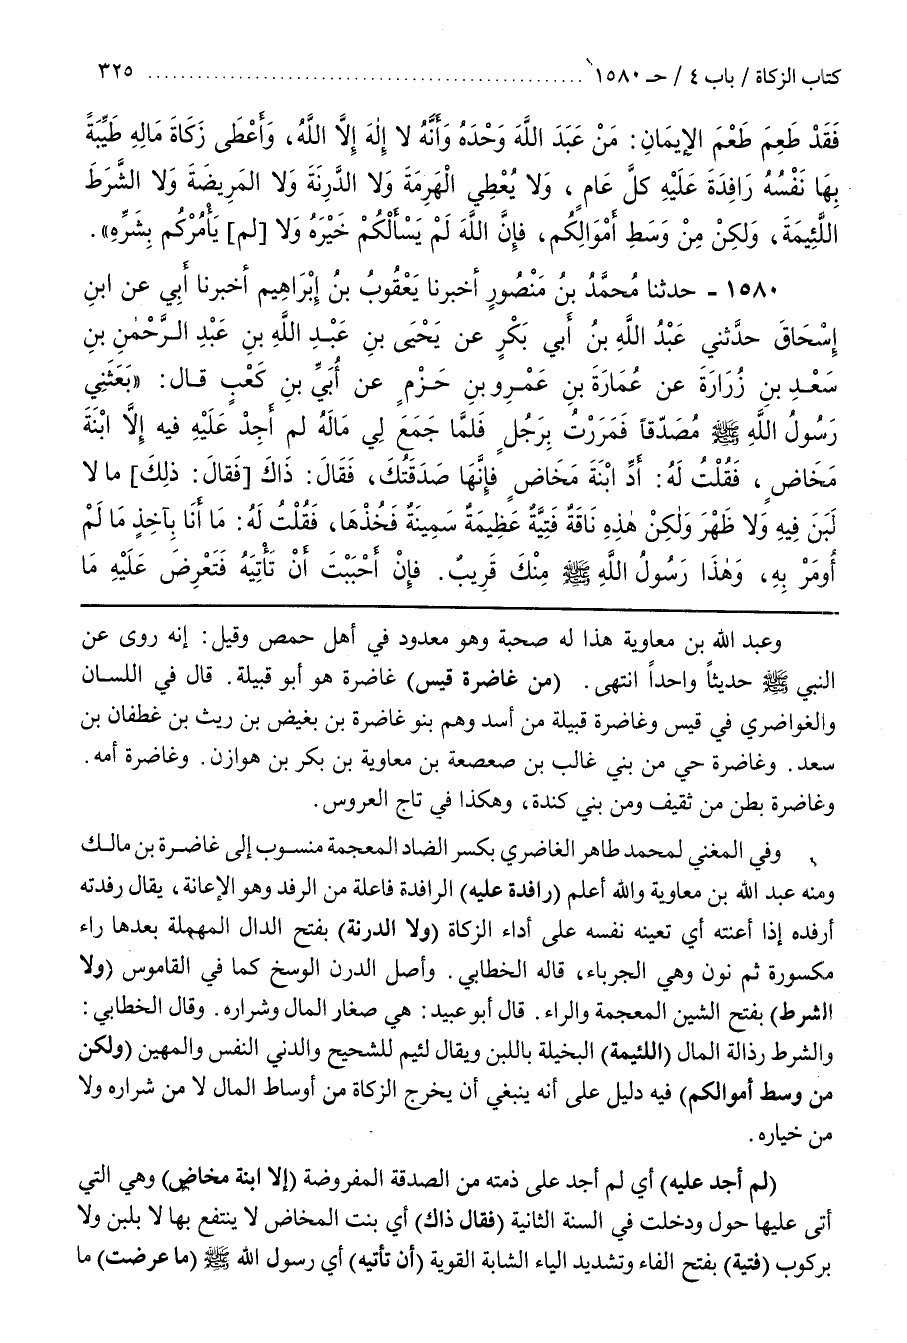 كتاب الزكاة / باب ٤ / حـ ١٥٨٠ ..................................................... ٣٢٥
فَقَدْ طَعِمَ طَعْمَ الإيمَانِ: مَنْ عَبَدَ اللَّهَ وَحْدَهُ وَأَنَّهُ لا إِلٰهَ إِلَّا اللَّهُ، وَأَعْطَى زَكَاةَ مَالِهِ طَيِّبَةً
بِهَا نَفْسُهُ رَافِدَةً عَلَيْهِ كلَّ عَامٍ، وَلا يُعْطِي الْهَرِمَةَ وَلا الدَّرِنَةَ وَلا المَرِيضَةَ وَلا الشَّرَطَ
اللَّئِيمَةَ، وَلَكِنْ مِنْ وَسَطِ أَمْوَالِكُم، فإِنَّ اللَّهَ لَمْ يَسْأَلْكُمْ خَيْرَهُ وَلا [لم] يَأْمُرْكُم بِشَرِّهِ».
١٥٨٠ - حدثنا مُحمَّدُ بنُ مَنْصُورٍ أخبرنا يَعْقُوبُ بنُ إِبْرَاهِيم أخبرنا أَبِي عن ابنِ
إِسْحَاقَ حدَّثني عَبْدُ اللَّهِ بنُ أَبي بَكْرٍ عن يَحْيَى بنِ عَبْدِ اللَّهِ بنِ عَبْدِ الرَّحْمٰنِ بنِ
سَعْدِ بن زُرَارَةَ عن عُمَارَةَ بنِ عَمْرِو بنِ حَزْمٍ عن أُبَيِّ بنِ كَعْبٍ قال: «بَعَثَنِي
رَسُولُ اللَّهِ ﷺ مُصَدِّقاً فَمَرَرْتُ بِرَجُلٍ فَلمَّا جَمَعَ لِي مَالَهُ لم أَجِدْ عَلَيْهِ فيه إِلَّا ابْنَةَ
مَخَاضٍ، فَقُلْتُ لَهُ: أَدِّ ابْنَةَ مَخَاضٍ فإِنَّهَا صَدَقَتُكَ، فَقَالَ: ذَاكَ [فَقالَ: ذلِكَ] ما لا
لَبَنَ فِيهِ وَلا ظَهْرَ وَلٰكِنْ هٰذِهِ نَاقَةٌ فَتِيَّةٌ عَظِيمَةٌ سَمِينَةٌ فَخُذْهَا، فَقُلْتُ لَهُ: مَا أَنَا بِآخِذٍ مَا لَمْ
أُومَرْ بِهِ، وَهٰذَا رَسُولُ اللَّهِ ﷺ مِنْكَ قَرِيبٌ. فإِنْ أَحْبَبْتَ أَنْ تَأْتِيَهُ فَتَعْرِضَ عَلَيْهِ مَا
وعبد الله بن معاوية هذا له صحبة وهو معدود في أهل حمص وقيل: إنه روى عن
النبي ﷺ حديثاً واحداً انتهى. (من غاضرة قيس) غاضرة هو أبو قبيلة. قال في اللسان
والغواضري في قيس وغاضرة قبيلة من أسد وهم بنو غاضرة بن بغيض بن ريث بن غطفان بن
سعد. وغاضرة حي من بني غالب بن صعصعة بن معاوية بن بكر بن هوازن. وغاضرة أمه.
وغاضرة بطن من ثقيف ومن بني كندة، وهكذا في تاج العروس.
وفي المغني لمحمد طاهر الغاضري بكسر الضاد المعجمة منسوب إلى غاضرة بن مالك
ومنه عبد الله بن معاوية والله أعلم (رافدة عليه) الرافدة فاعلة من الرفد وهو الإعانة، يقال رفدته
أرفده إذا أعنته أي تعينه نفسه على أداء الزكاة (ولا الدرنة) بفتح الدال المهملة بعدها راء
مكسورة ثم نون وهي الجرباء، قاله الخطابي. وأصل الدرن الوسخ كما في القاموس (ولا
الشرط) بفتح الشين المعجمة والراء. قال أبو عبيد: هي صغار المال وشراره. وقال الخطابي:
والشرط رذالة المال (اللئيمة) البخيلة باللبن ويقال لئيم للشحيح والدني النفس والمهين (ولكن
من وسط أموالكم) فيه دليل على أنه ينبغي أن يخرج الزكاة من أوساط المال لا من شراره ولا
من خياره.
(لم أجد عليه) أي لم أجد على ذمته من الصدقة المفروضة (إلا ابنة مخاض) وهي التي
أتى عليها حول ودخلت في السنة الثانية (فقال ذاك) أي بنت المخاض لا ينتفع بها لا بلبن ولا
بركوب (فتية) بفتح الفاء وتشديد الياء الشابة القوية (أن تأتيه) أي رسول الله ﷺ (ما عرضت) ما